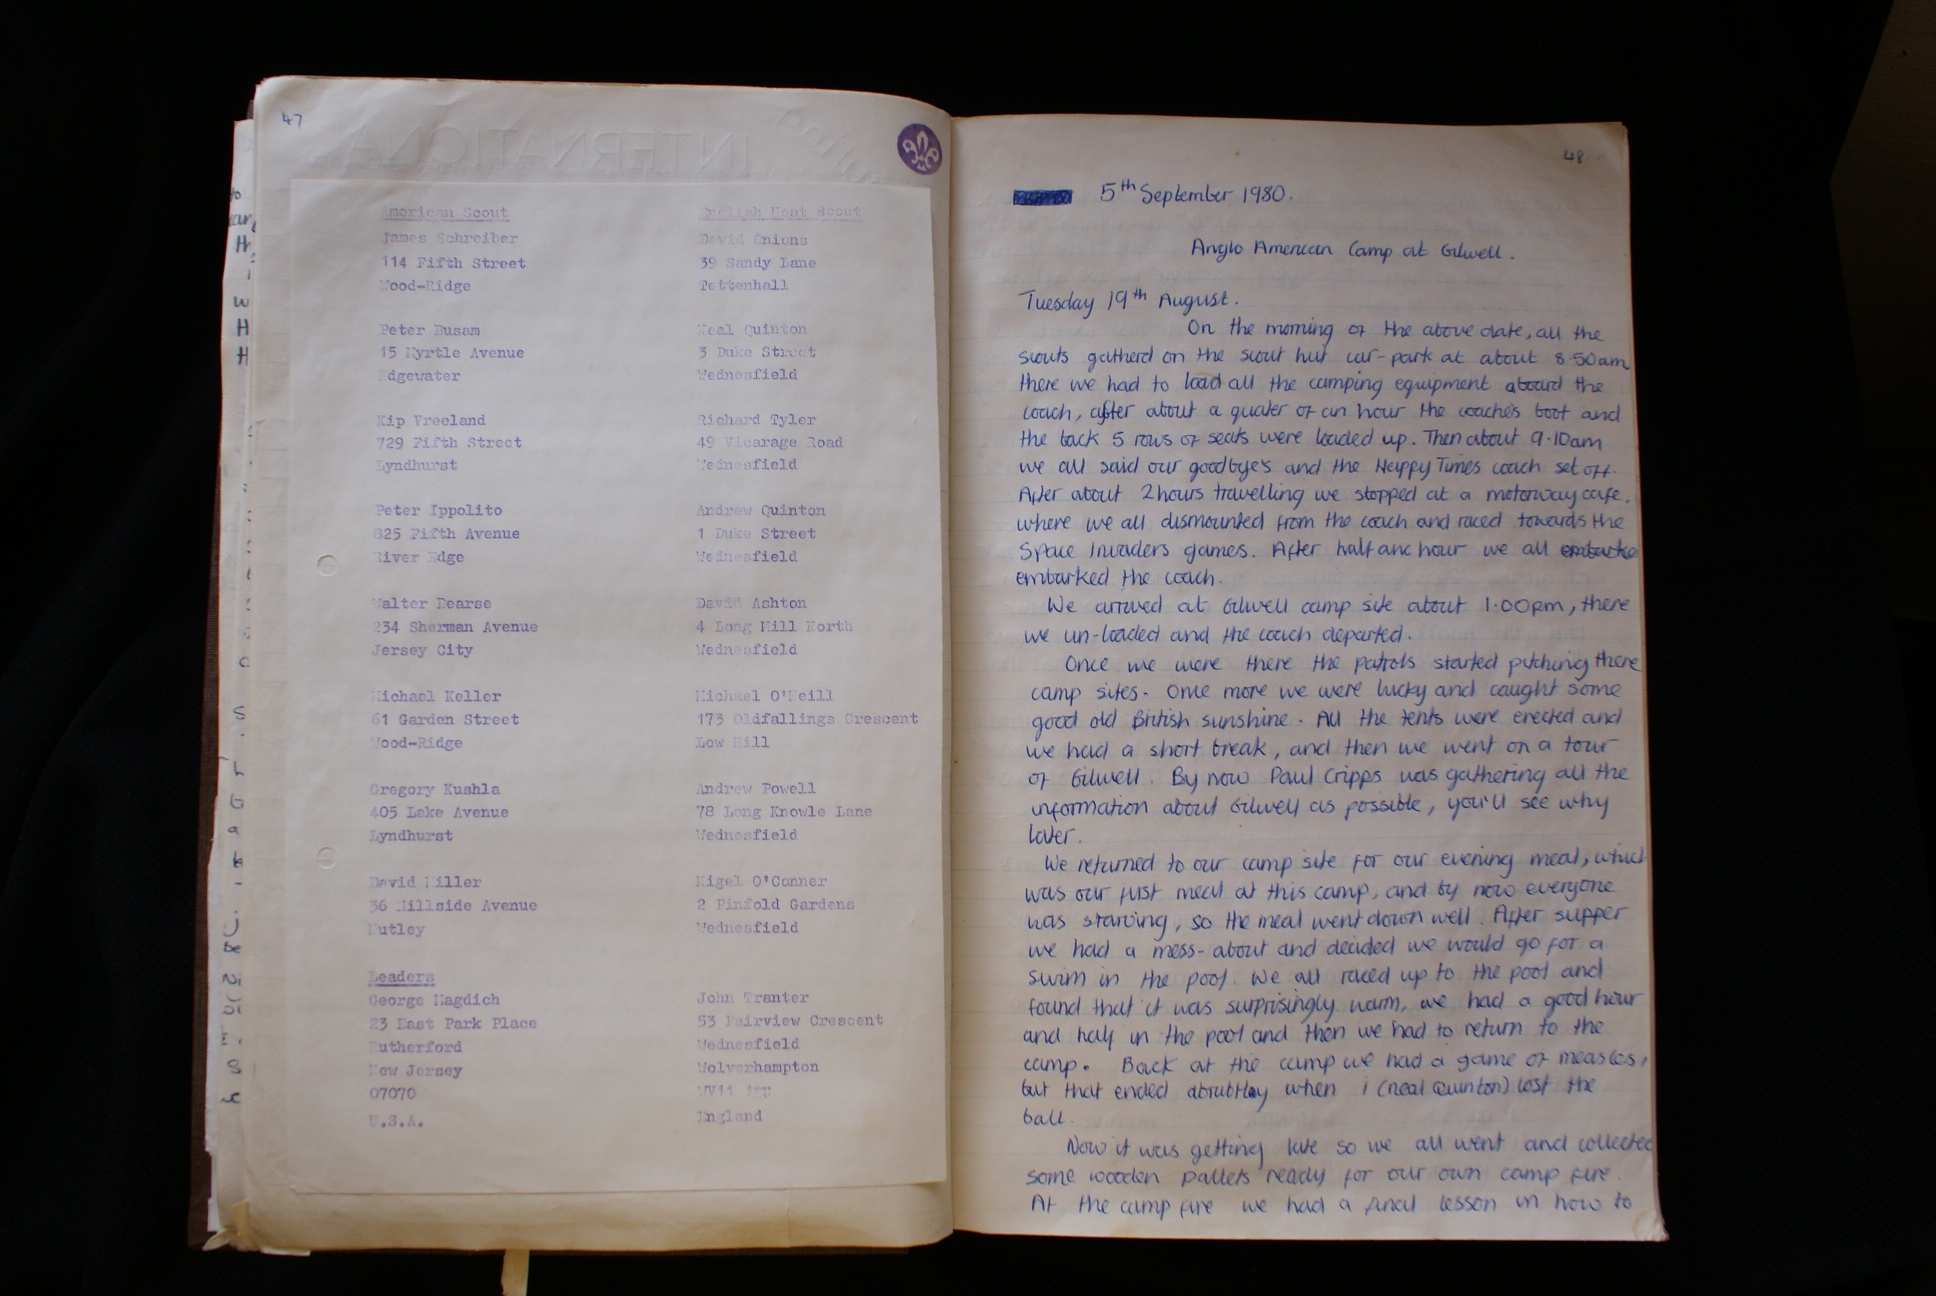 47
INTERNATIONA
American Scout English Host Scout
James Schreiber David Onions
114 Fifth Street 39 Sandy Lane
Wood-Ridge Tettenhall
Peter Busam Neal Quinton
15 Myrtle Avenue 3 Duke Street
Edgewater Wednesfield
Kip Vreeland Richard Tyler
729 Fifth Street 49 Vicarage Road
Lyndhurst Wednesfield
Peter Ippolito Andrew Quinton
825 Fifth Avenue 1 Duke Street
River Edge Wednesfield
Walter Dearse David Ashton
234 Sherman Avenue 4 Long Mill North
Jersey City Wednesfield
Michael Keller Michael O'Neill
61 Garden Street 173 Oldfallings Crescent
Wood-Ridge Low Hill
Gregory Kushla Andrew Powell
405 Lake Avenue 78 Long Knowle Lane
Lyndhurst Wednesfield
David Miller Nigel O'Conner
36 Hillside Avenue 2 Pinfold Gardens
Nutley Wednesfield
Leaders
George Magdich John Tranter
23 East Park Place 53 Fairview Crescent
Rutherford Wednesfield
New Jersey Wolverhampton
07070 WV11
U.S.A. England
48
5th September 1980.
Anglo American Camp at Gilwell.
Tuesday 19th August.
On the morning of the above date, all the
scouts gatherd on the scout hut car-park at about 8.50am
there we had to load all the camping equipment aboard the
coach, after about a quater of an hour the coaches boot and
the back 5 rows of seats were loaded up. Then about 9.10am
we all said our goodbye's and the Happy Times coach set off.
After about 2 hours travelling we stopped at a motorway cafe.
where we all dismounted from the coach and raced towards the
Space Invaders games. After half anc hour we all embarke
embarked the coach.
We arrived at Gilwell camp site about 1.00pm, there
we un-loaded and the coach departed.
Once we were there the patrols started pitching there
camp sites. Once more we were lucky and caught some
good old British sunshine. All the tents were erected and
we had a short break, and then we went on a tour
of Gilwell. By now Paul Cripps was gathering all the
information about Gilwell as possible, you'll see why
later.
We returned to our camp site for our evening meal, which
was our first meal at this camp, and by now everyone
was starving, so the meal went down well. After supper
we had a mess-about and decided we would go for a
swim in the pool. We all raced up to the pool and
found that it was surprisingly warm, we had a good hour
and half in the pool and then we had to return to the
camp. Back at the camp we had a game of measles,
but that ended abrubtlay when i (neal Quinton) lost the
ball.
Now it was getting late so we all went and collected
some wooden pallets ready for our own camp fire.
At the camp fire we had a final lesson in how to